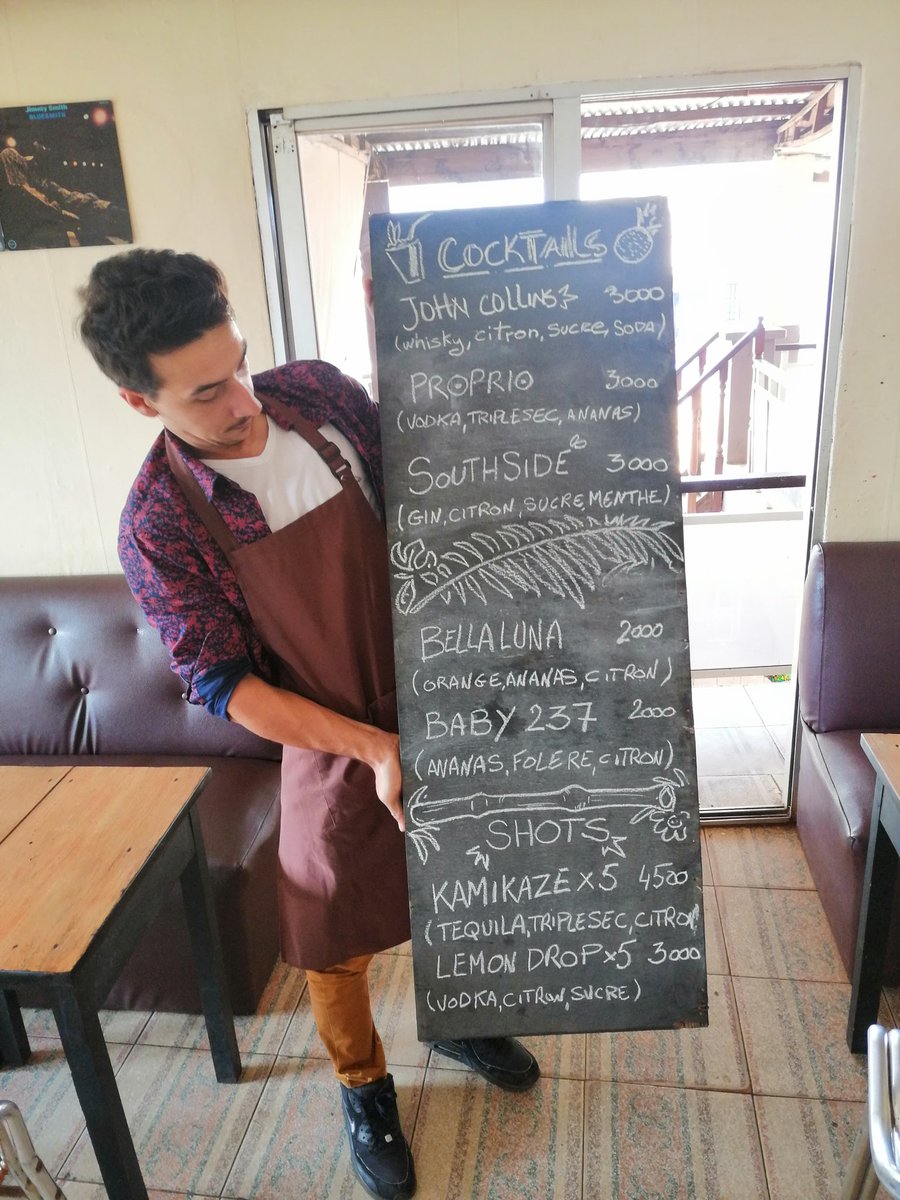 Jimmy Smith
BLUESMITH
COCKTAILS
JOHN COLLINS 3000
(whisky, citron, sucre, SODA)
PROPRIO 3000
(VODKA, TRIPLESEC, ANANAS)
SOUTHSIDE 3000
(GIN, CITRON, SUCRE, MENTHE)
BELLA LUNA 2000
(ORANGE, ANANAS, CITRON)
BABY 237 2000
(ANANAS, FOLERE, CITRON)
SHOTS
KAMIKAZE x5 4500
(TEQUILA, TRIPLESEC, CITRON)
LEMON DROP x5 3000
(VODKA, CITRON, SUCRE)